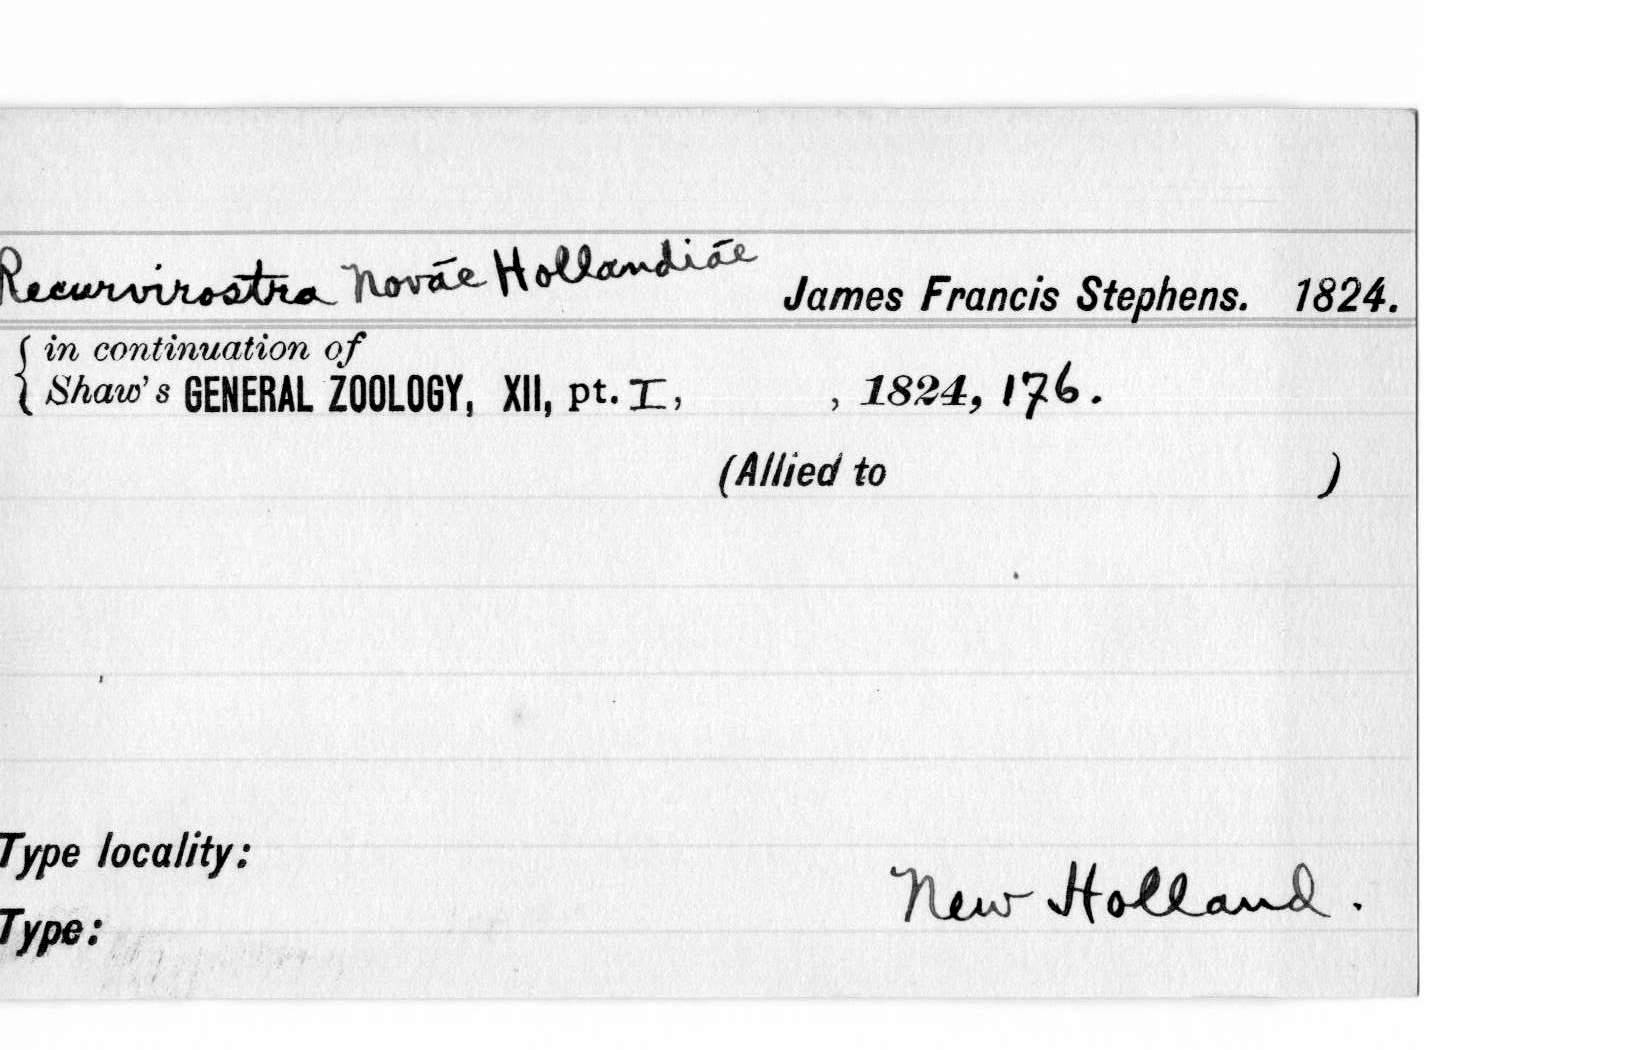 Recurvirostra Novāe Hollandiāe James Francis Stephens. 1824.
in continuation of
Shaw's GENERAL ZOOLOGY, XII, pt. I, , 1824, 176.
(Allied to )
Type locality:
New Holland.
Type: